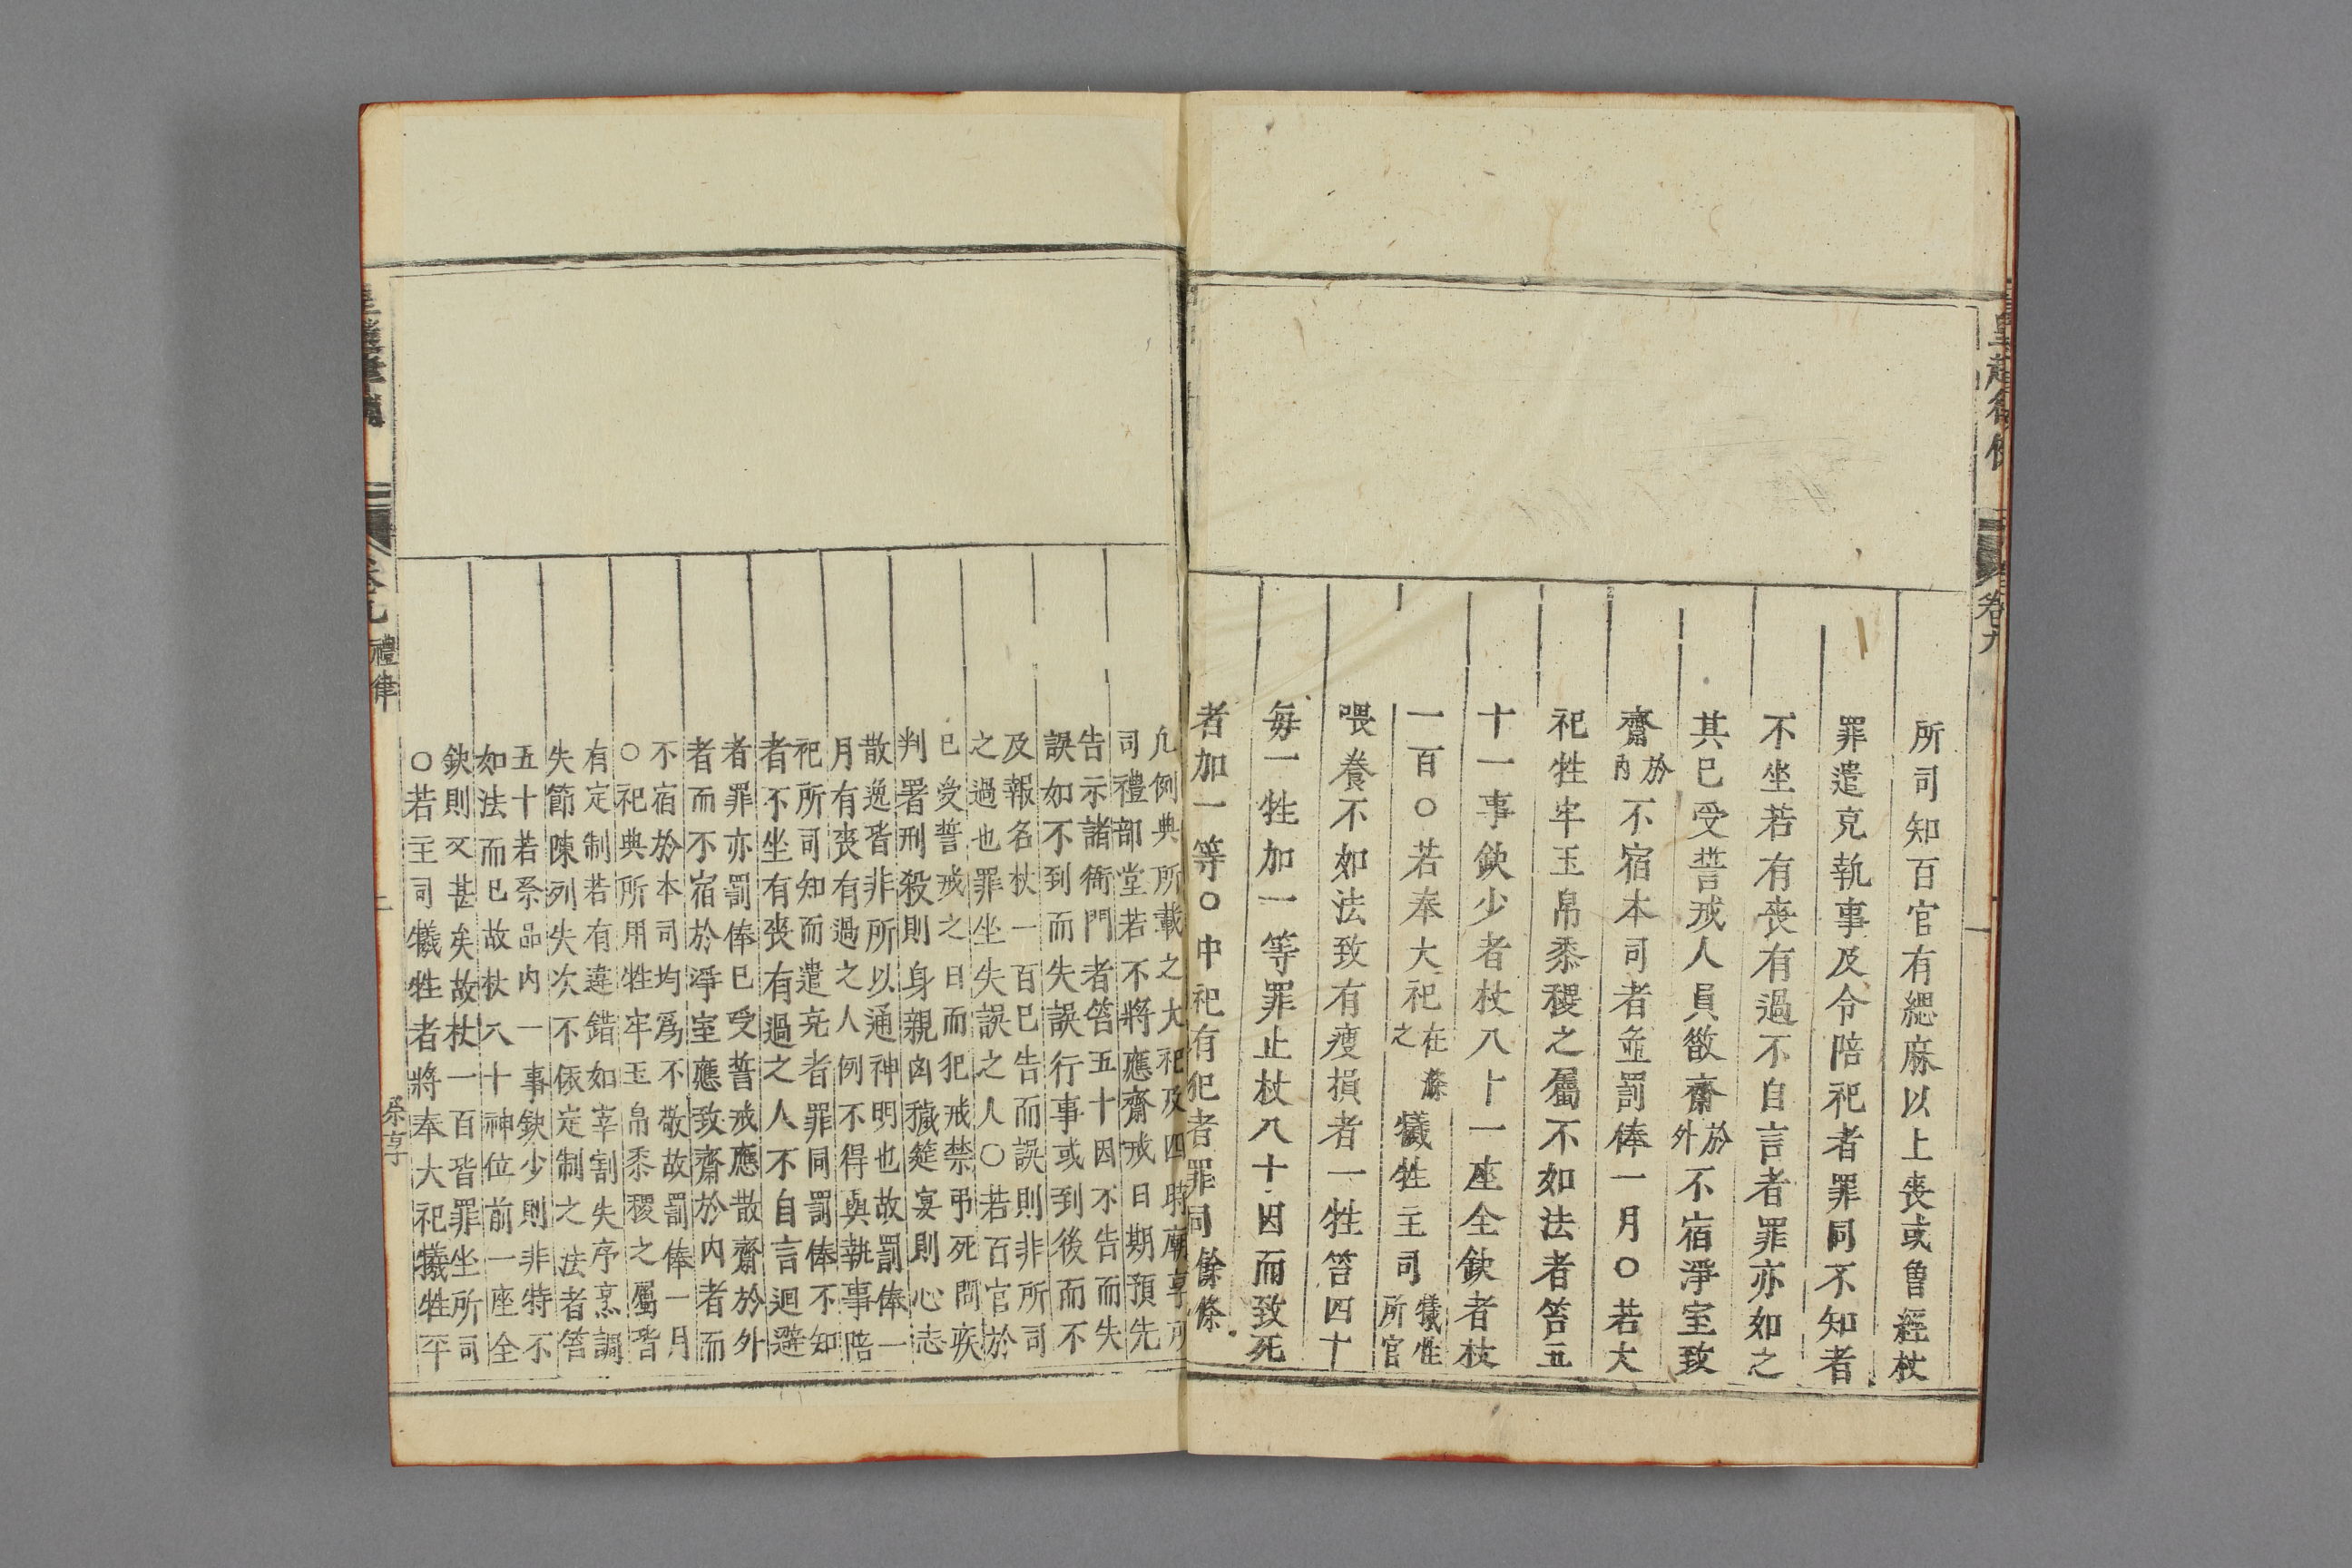 卷九
所司知百官有緦麻以上喪或曾經杖
罪遣充執事及令陪祀者罪同不知者
不坐若有喪有過不自言者罪亦如之
其已受誓戒人員散齋於外不宿淨室致
齋於內不宿本司者並罰俸一月○若大
祀牲牢玉帛黍稷之屬不如法者笞五
十一事缺少者杖八十一座全缺者杖
一百○若奉大祀在滌之犧牲主司犧牲所官
喂養不如法致有瘦損者一牲笞四十
每一牲加一等罪止杖八十因而致死
者加一等○中祀有犯者罪同餘條
凡例典所載之大祀及四時廟享
司禮部堂若不將應齋戒日期預先
告示諸衙門者笞五十因不告而失
誤如不到而失誤行事或到後而不
及報名杖一百已告而誤則非所司
之過也罪坐失誤之人○若百官於
已受誓戒之日而犯戒禁弔死問疾
判署刑殺則身親凶穢筵宴則心志
散逸皆非所以通神明也故罰俸一
月有喪有過之人例不得與執事陪
祀所司知而遣充者罪同罰俸不知
者不坐有喪有過之人不自言迴避
者罪亦罰俸已受誓戒應散齋於外
者而不宿於淨室應致齋於內者而
不宿於本司均爲不敬故罰俸一月
○祀典所用牲牢玉帛黍稷之屬皆
有定制若有違錯如宰割失序烹調
失節陳列失次不依定制之法者笞
五十若祭品內一事缺少則非特不
如法而已故杖八十神位前一座全
缺則又甚矣故杖一百皆罪坐所司
○若主司犧牲者將奉大祀犧牲平
卷九 禮律
祭享